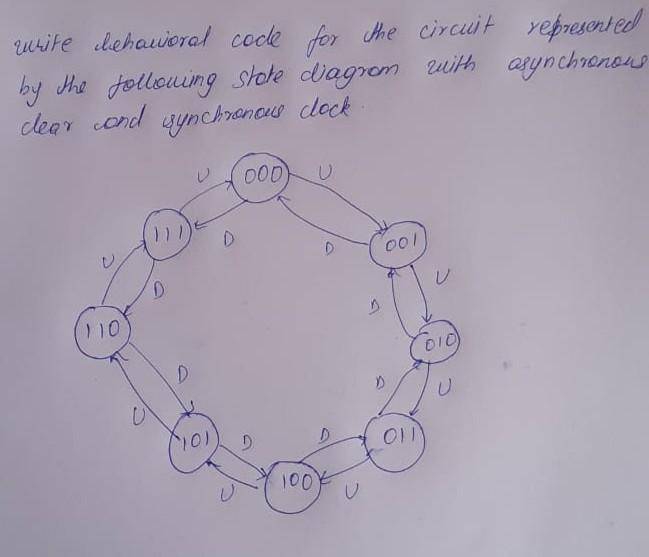 write behavioral code for the circuit represented
by the following state diagram with asynchronous
clear and synchronous clock.
U 000 U
111 D D 001
U D D U
110 010
D D U
U 101 D D 011
U 100 U